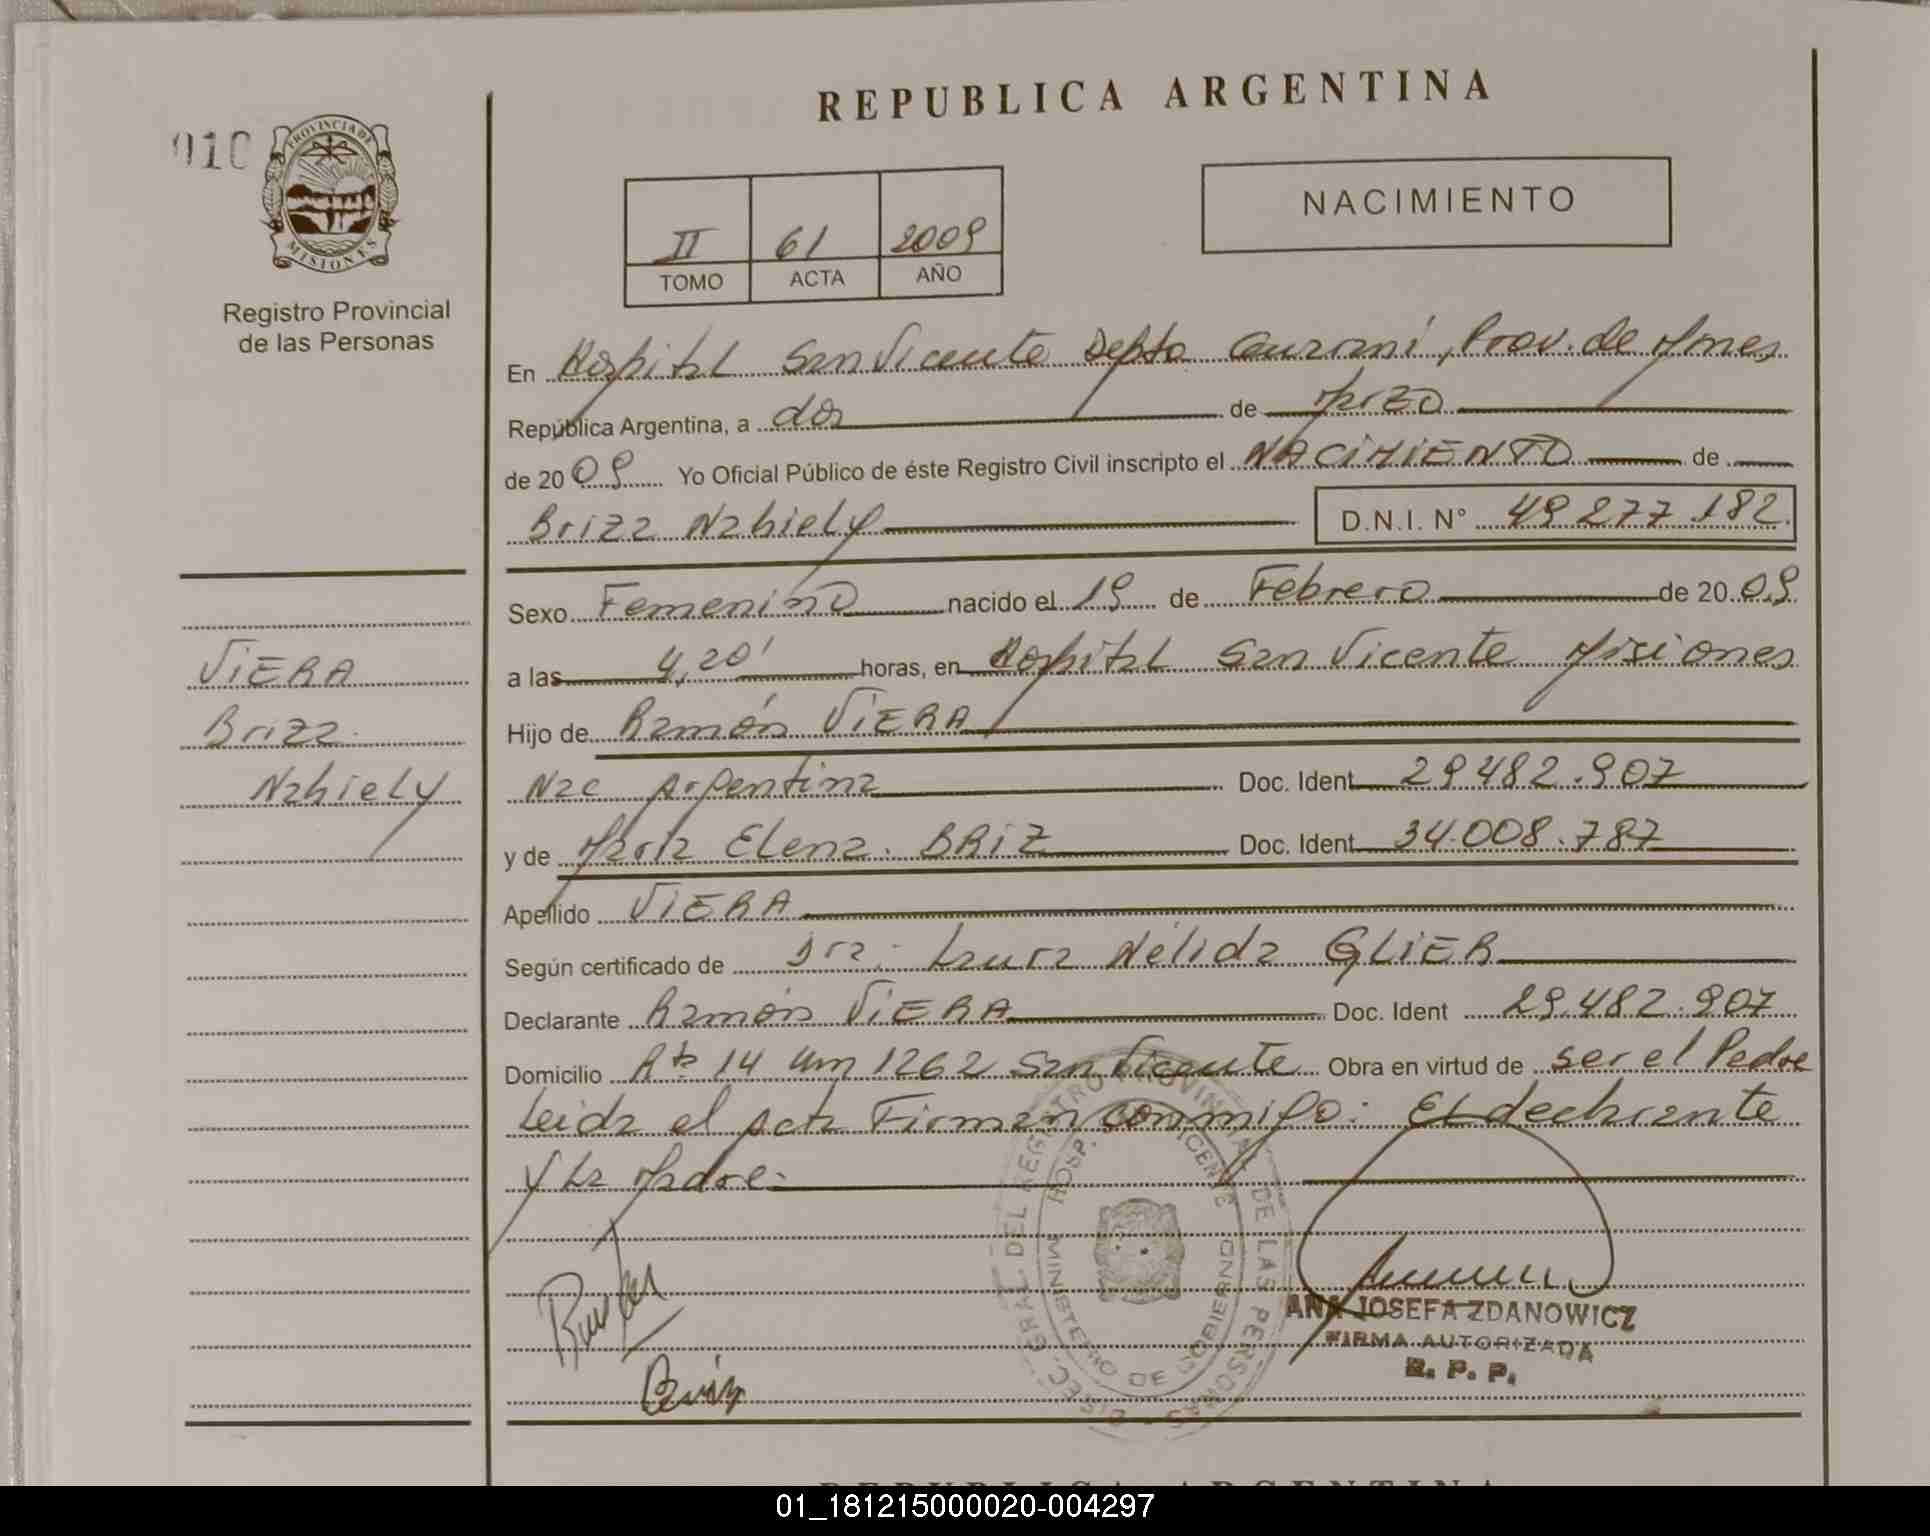 REPUBLICA ARGENTINA
010
PROVINCIA DE MISIONES
Registro Provincial
de las Personas
II 61 2009
TOMO ACTA AÑO
NACIMIENTO
En Hospital San Vicente Depto Guarani, Prov. de Mnes
República Argentina, a dos de Marzo
de 2009 Yo Oficial Público de éste Registro Civil inscripto el NACIMIENTO de
Briza Nahiely D.N.I. N° 49277.182
Sexo Femenino nacido el 19 de Febrero de 2009
a las 4,20' horas, en Hospital San Vicente Misiones
Hijo de Ramón VIERA
Nac Argentina Doc. Ident 29482.907
y de María Elena. BRIZ Doc. Ident 34.008.787
Apellido VIERA
Según certificado de Dra: Laura Nélida GLIER
Declarante Ramón VIERA Doc. Ident 29.482.907
Domicilio Rta 14 Km 1262 San Vicente Obra en virtud de ser el Padre
Leida el Acta Firman conmigo: El declarante
y La Madre-
VIERA
Briza
Nahiely
DIREC. GRAL. DEL REGISTRO PROVINCIAL DE LAS PERSONAS
HOSP. VICENTE
MINISTERIO DE GOBIERNO
ANA JOSEFA ZDANOWICZ
FIRMA AUTORIZADA
R. P. P.
REPUBLICA ARGENTINA
01_181215000020-004297